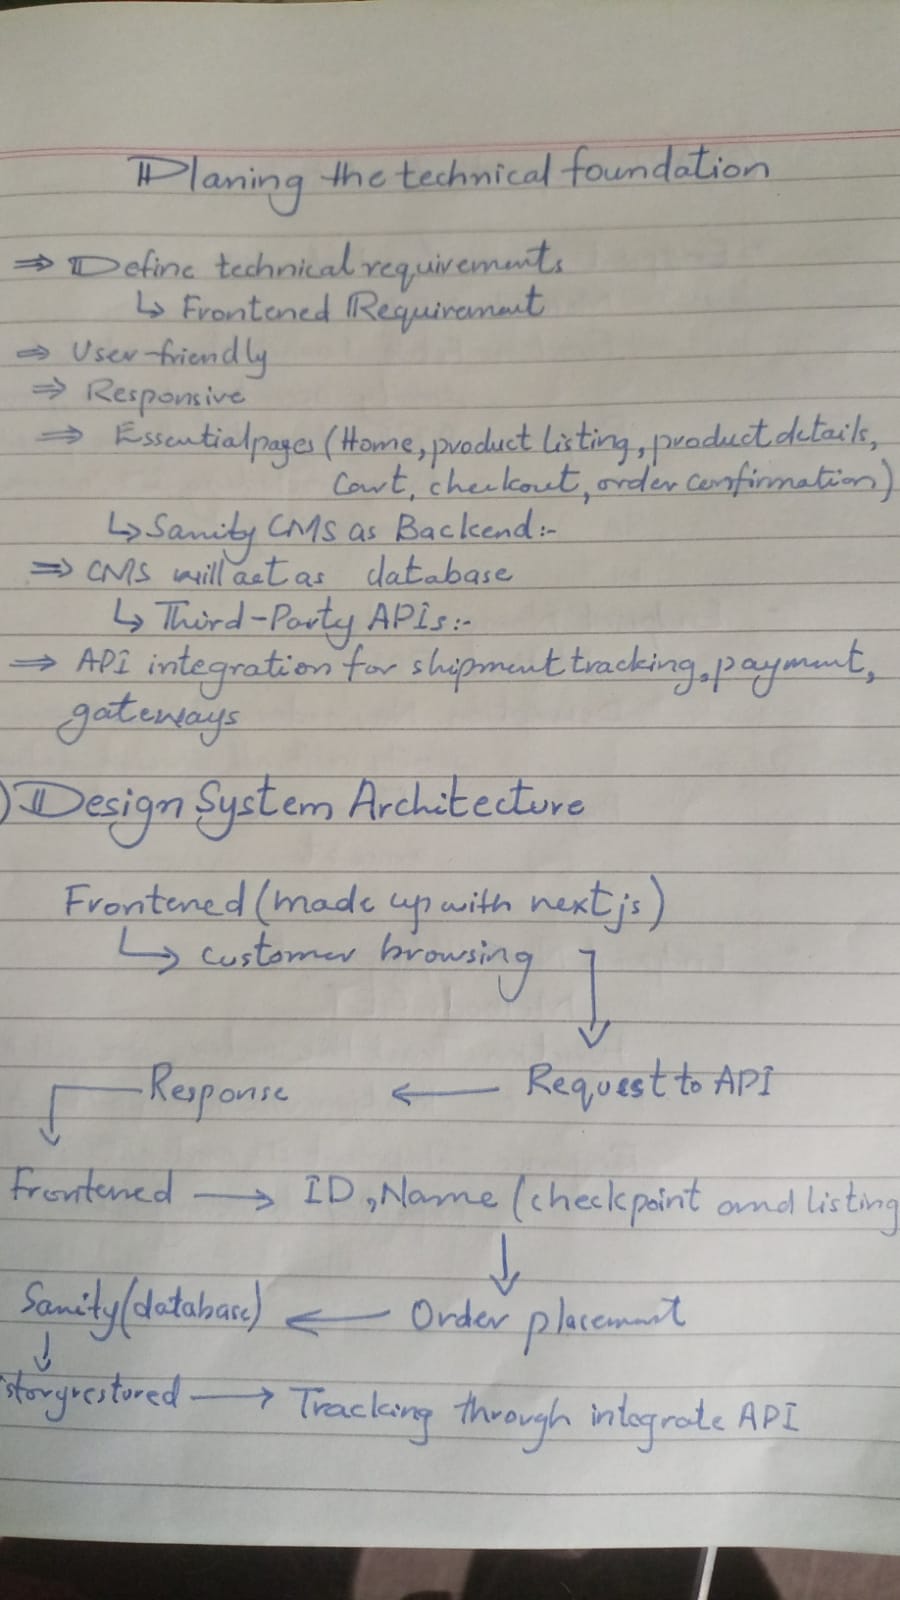 Planing the technical foundation
⇒ Define technical requirements
↳ Frontened Requirement
⇒ User-friendly
⇒ Responsive
⇒ Essential pages (Home, product listing, product details,
Cart, checkout, order confirmation)
↳ Sanity CMS as Backend:-
⇒ CMS will act as database
↳ Third-Party APIs:-
⇒ API integration for shipment tracking, payment,
gateways
) Design System Architecture
Frontened (made up with next js)
↳ customer browsing
Response ← Request to API
Frontened → ID, Name (checkpoint and listing
↓
Sanity (database) ← Order placement
↓
story restored → Tracking through integrate API